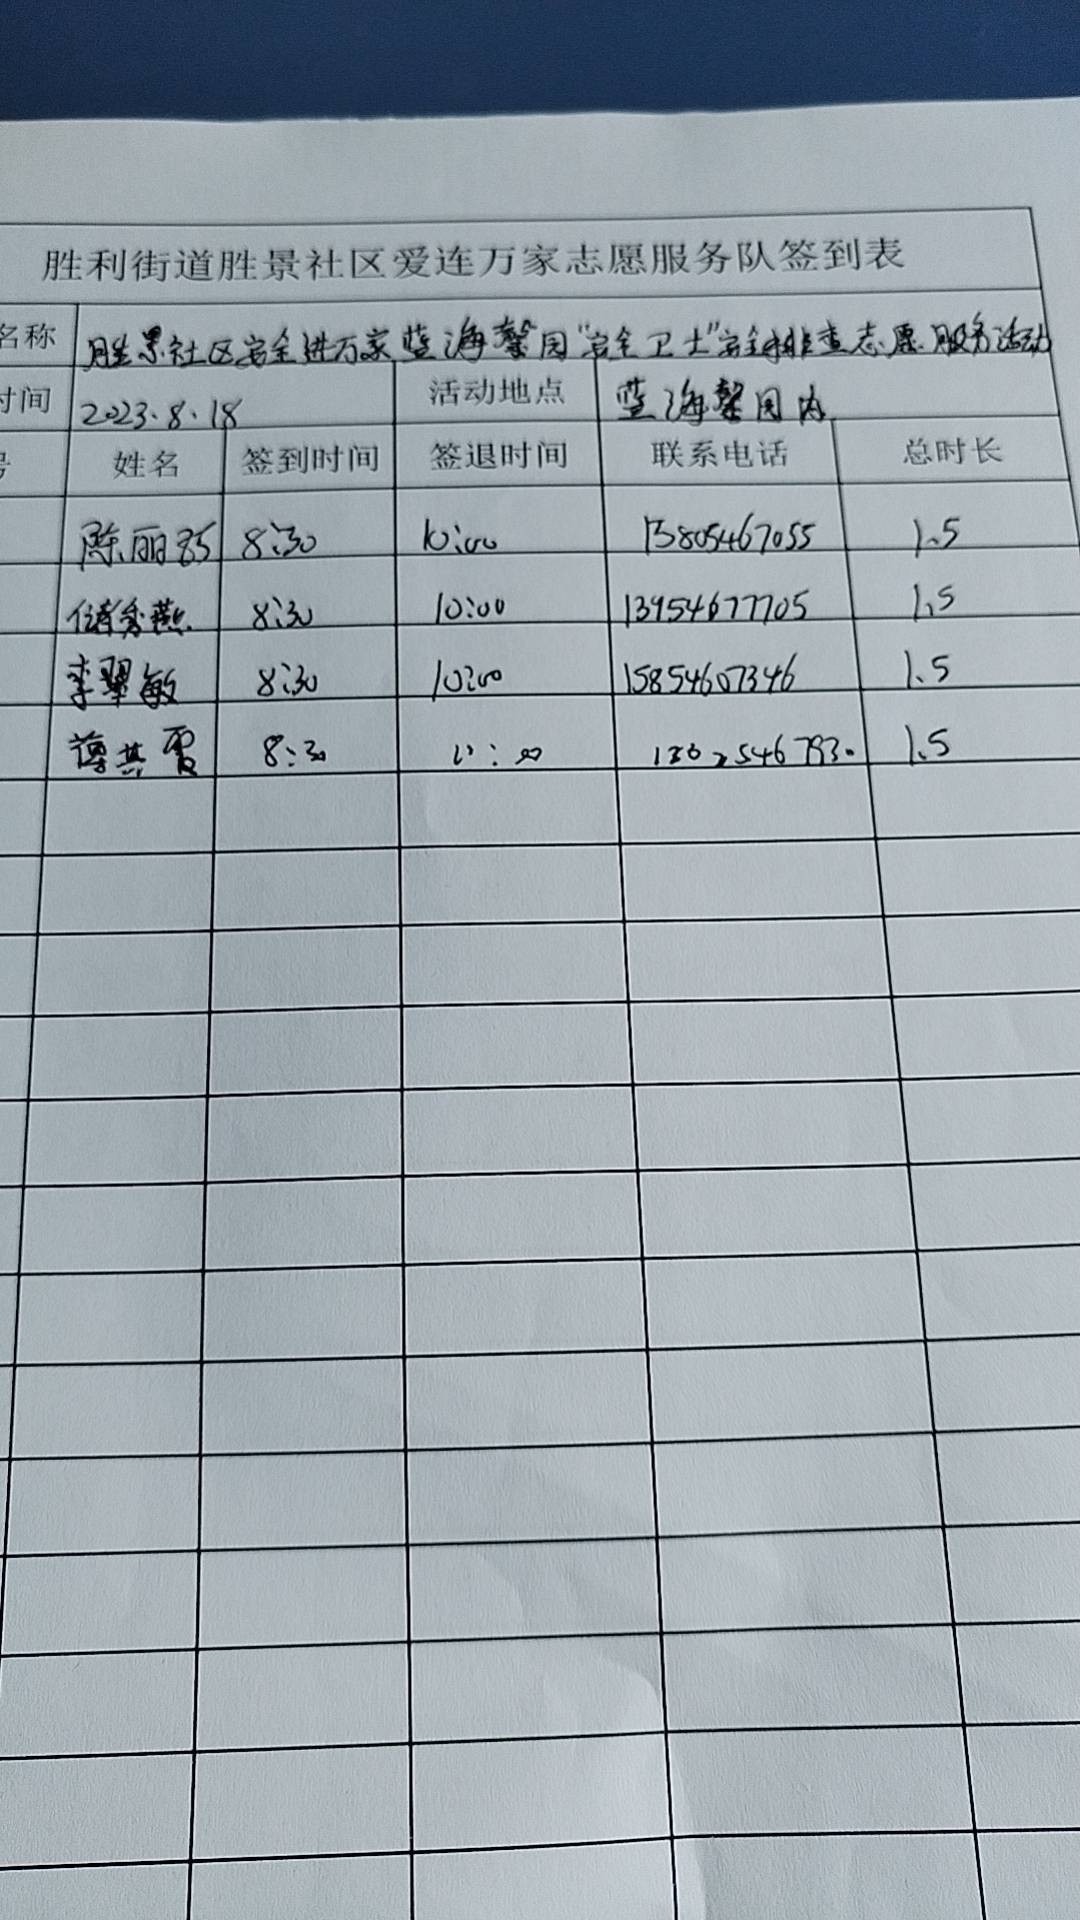 胜利街道胜景社区爱连万家志愿服务队签到表
名称 胜景社区安全进万家蓝海馨园“安全卫士”安全排查志愿服务活动
时间 2023.8.18 活动地点 蓝海馨园内
号 姓名 签到时间 签退时间 联系电话 总时长
陈丽 8:30 10:00 13805467055 1.5
储秀燕 8:30 10:00 13954677705 1.5
李翠敏 8:30 10:00 15854607346 1.5
薄其霞 8:30 1.5